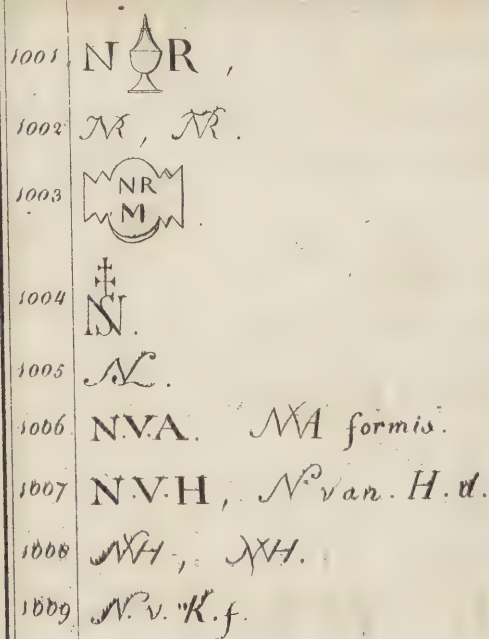 1001 N R ,
1002 NR , NR .
1003 NR
M .
1004 NS .
1005 NL .
1006 N.V.A. NVA formis.
1007 N.V.H , N van . H. d.
1008 NVH , NVH .
1009 N. v. K. f.